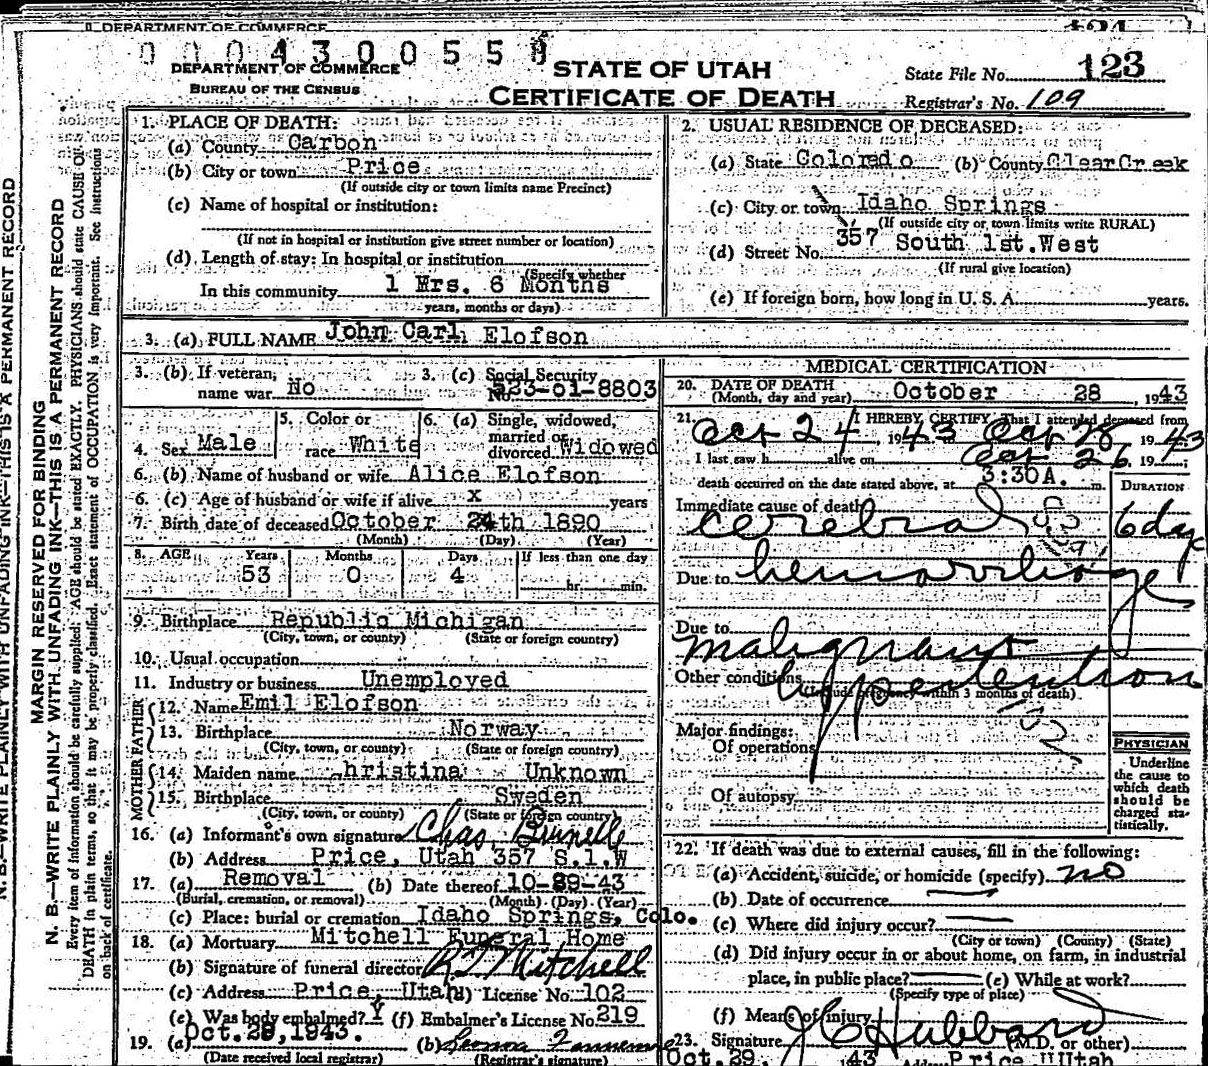 DEPARTMENT OF COMMERCE
0 0 0 4 3 0 0 5 5
DEPARTMENT OF COMMERCE
BUREAU OF THE CENSUS
STATE OF UTAH
CERTIFICATE OF DEATH
State File No. 123
Registrar's No. 109
1. PLACE OF DEATH:
(a) County Carbon
(b) City or town Price
(If outside city or town limits name Precinct)
(c) Name of hospital or institution:
(If not in hospital or institution give street number or location)
(d) Length of stay: In hospital or institution
(Specify whether
In this community 1 Hrs. 6 Months
years, months or days)
2. USUAL RESIDENCE OF DECEASED:
(a) State Colorado (b) County Clear Creek
(c) City or town Idaho Springs
(If outside city or town limits write RURAL)
(d) Street No. 357 South 1st. West
(If rural give location)
(e) If foreign born, how long in U. S. A. years.
3. (a) FULL NAME John Carl Elofson
3. (b) If veteran, name war No
3. (c) Social Security No. 523-01-8803
4. Sex Male
5. Color or race White
6. (a) Single, widowed, married or divorced Widowed
6. (b) Name of husband or wife Alice Elofson
6. (c) Age of husband or wife if alive X years
7. Birth date of deceased October 24th 1890
(Month) (Day) (Year)
8. AGE Years Months Days If less than one day
53 0 4 hr. min.
9. Birthplace Republic Michigan
(City, town, or county) (State or foreign country)
10. Usual occupation
11. Industry or business Unemployed
FATHER
12. Name Emil Elofson
13. Birthplace Norway
(City, town, or county) (State or foreign country)
MOTHER
14. Maiden name hristina Unknown
15. Birthplace Sweden
(City, town, or county) (State or foreign country)
16. (a) Informant's own signature Chas. Brunelle
(b) Address Price, Utah 357 S.1.W
17. (a) Removal (b) Date thereof 10-29-43
(Burial, cremation, or removal) (Month) (Day) (Year)
(c) Place: burial or cremation Idaho Springs, Colo.
18. (a) Mortuary Mitchell Funeral Home
(b) Signature of funeral director Mitchell
(c) Address Price, Utah (d) License No. 102
(e) Was body embalmed? Y (f) Embalmer's License No. 219
19. (a) Oct. 29, 1943. (b)
(Date received local registrar) (Registrar's signature)
MEDICAL CERTIFICATION
20. DATE OF DEATH
(Month, day and year) October 28, 1943
21. I HEREBY CERTIFY, That I attended deceased from
Oct 24, 1943 Oct 28, 1943
I last saw h alive on Oct 26, 19
death occurred on the date stated above, at 3:30 A. m.
DURATION
Immediate cause of death cerebral 6 days
Due to hemorrhage
Due to malignant
Other conditions hypertention
(Include pregnancy within 3 months of death)
102
Major findings:
Of operations
Of autopsy
PHYSICIAN
Underline
the cause to
which death
should be
charged sta-
tistically.
22. If death was due to external causes, fill in the following:
(a) Accident, suicide, or homicide (specify) no
(b) Date of occurrence
(c) Where did injury occur?
(City or town) (County) (State)
(d) Did injury occur in or about home, on farm, in industrial
place, in public place? (e) While at work?
(Specify type of place)
(f) Means of injury
23. Signature J C Hubbard (M.D. or other)
Oct. 29, 43 Address Price, Utah
N. B.—WRITE PLAINLY WITH UNFADING INK—THIS IS A PERMANENT RECORD
MARGIN RESERVED FOR BINDING
N. B.—WRITE PLAINLY WITH UNFADING INK—THIS IS A PERMANENT RECORD
Every item of information should be carefully supplied; AGE should be stated EXACTLY. PHYSICIANS should state CAUSE OF
DEATH in plain terms, so that it may be properly classified. Exact statement of OCCUPATION is very important. See instructions
on back of certificate.